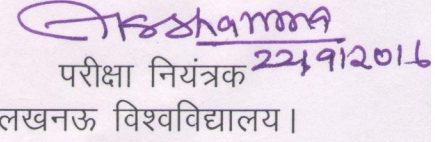 22/9/2016
परीक्षा नियंत्रक
लखनऊ विश्वविद्यालय।